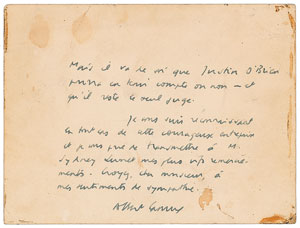 Mais il va de soi que Justin O'Brien
pourra en tenir compte ou non — et
qu'il reste le seul juge.
Je vous suis reconnaissant
en tout cas de cette courageuse entreprise
et je vous prie de transmettre à M.
Sydney mes plus vifs remercie-
ments. Croyez, cher monsieur, à
mes sentiments de sympathie.
Albert Camus